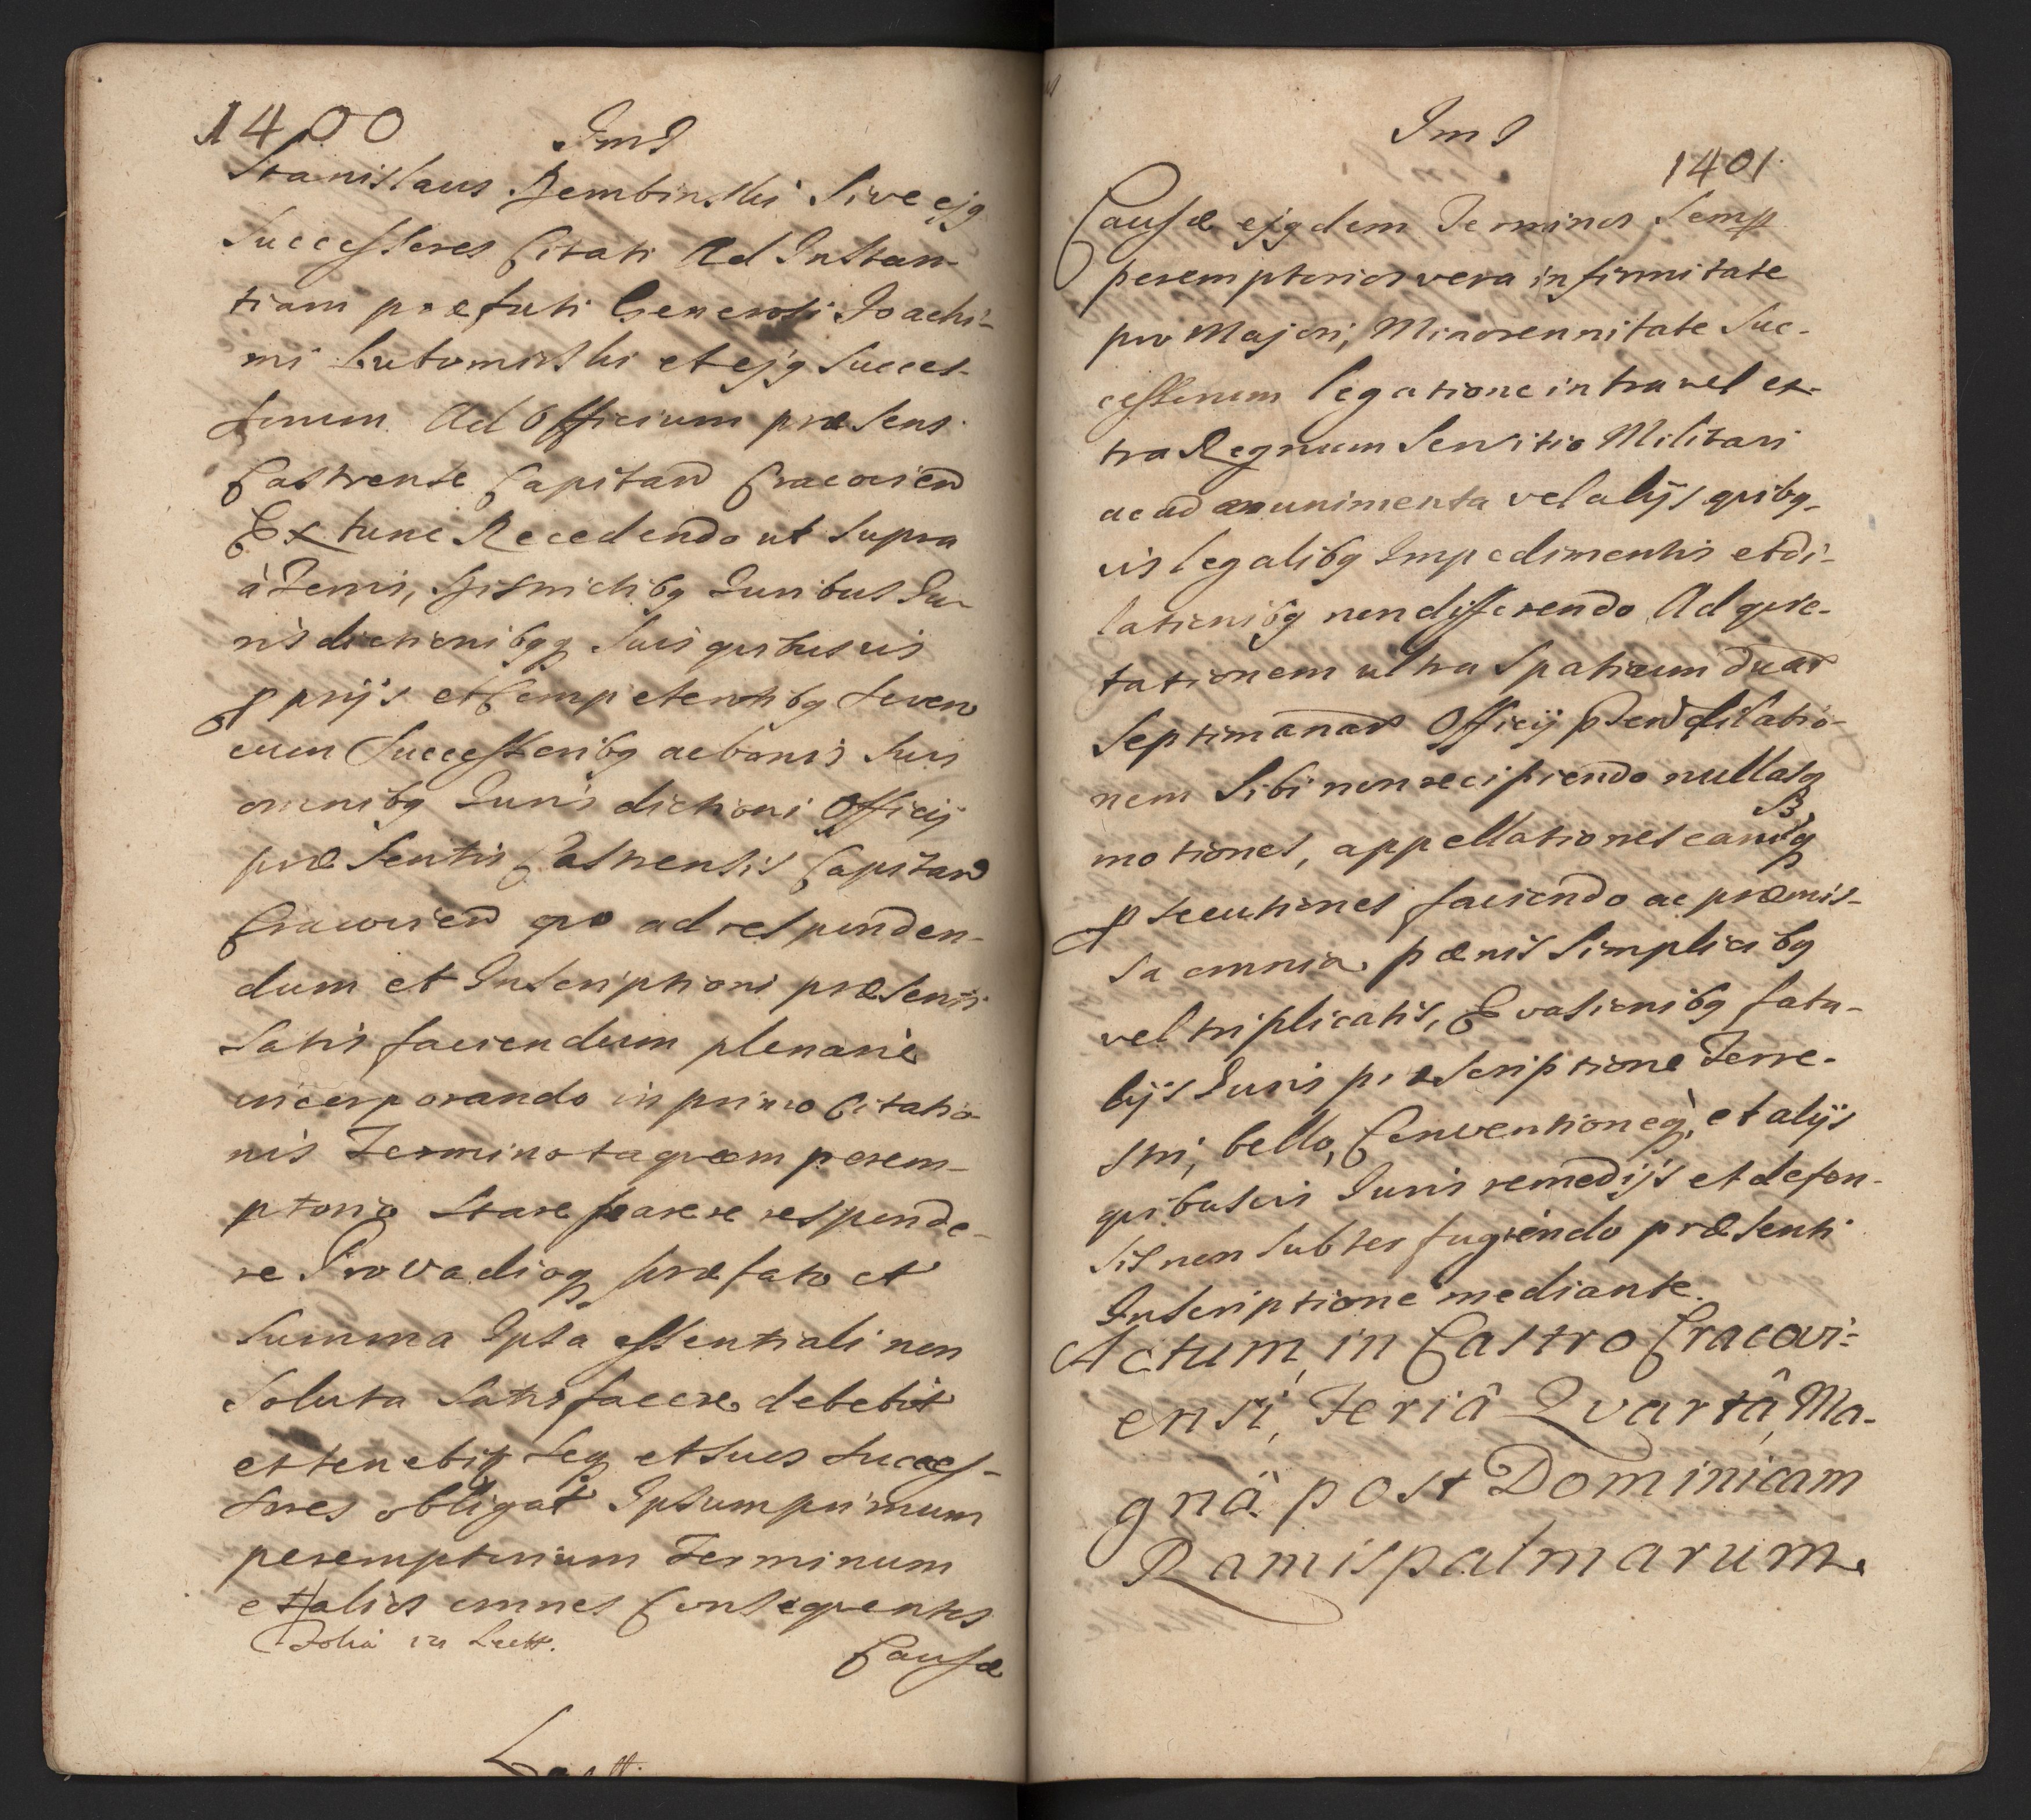 1400
Ims
Stanislaus Rembinski Sive ejq
Successores Citati Ad Instan-
tiam præfati Generosi Joachi-
mi Lubomirski et ejq Succes-
sorum Ad Officium præsens
Castrense Capitan Cracovien
Ex tunc Recedendo ut Supra
à Terris, Districtibq Juribus Ju-
risdictionibqq Suis quibusvis
pprijs et Competentibq Seven
cum Successoribq ac bonis Suis
omnibq Jurisdictioni Officij
præsentis Castrensis Capitan
Cracovien quo ad responden-
dum et Inscriptioni præsenti
Satisfaciendum plenarie
incorporando in primo Citatio-
nis Termino taquam perem-
ptorio Stare parere responde-
re Pro Vadioq præfato et
Summa Ipsa essentiali non
Soluta Satisfacere debebit
et tenebit Seq et Suos Succes-
sores obligat Ipsum primum
peremptorium Terminum
et alios omnes Consequentes
Folia in Lect.
Causæ
Ims
1401
Causæ ejqdem Terminos Semp
peremptorios vera infirmitate
pro Majori, Minorennitate Suc-
cessorum legatione intra vel ex-
tra Regnum Servitio Militari
ac ad munimenta vel alijs quibq-
vis legalibq Impedimentis et di-
lationibq non differendo Ad quie-
tationem ultra Spatium duar
Septimanar Officij psen dilatio-
nem Sibi non recipiendo nullasq
motiones, appellationes earumq
psecutiones faciendo ac præmis-
sa omnia pænis Simplicibq
vel triplicatis, Evasionibq fata-
lijs Juris præscriptione Terre-
stri, bello, Conventioneq, et alijs
quibusvis Juris remedijs et defen-
sis non Subterfugiendo præsenti
Inscriptione mediante.
Actum, in Castro Cracovi-
ensi, Feriâ Qvartâ, Ma-
gnâ post Dominicam
Ramispalmarum.